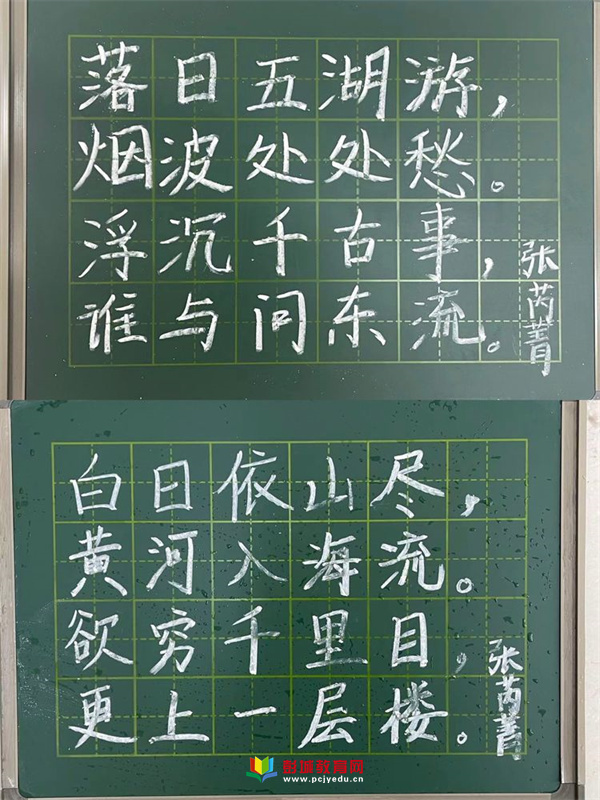 落日五湖游，
烟波处处愁。
浮沉千古事，
谁与问东流。
张芮菁
白日依山尽，
黄河入海流。
欲穷千里目，
更上一层楼。
张芮菁
彭城教育网
www.pcjyedu.cn